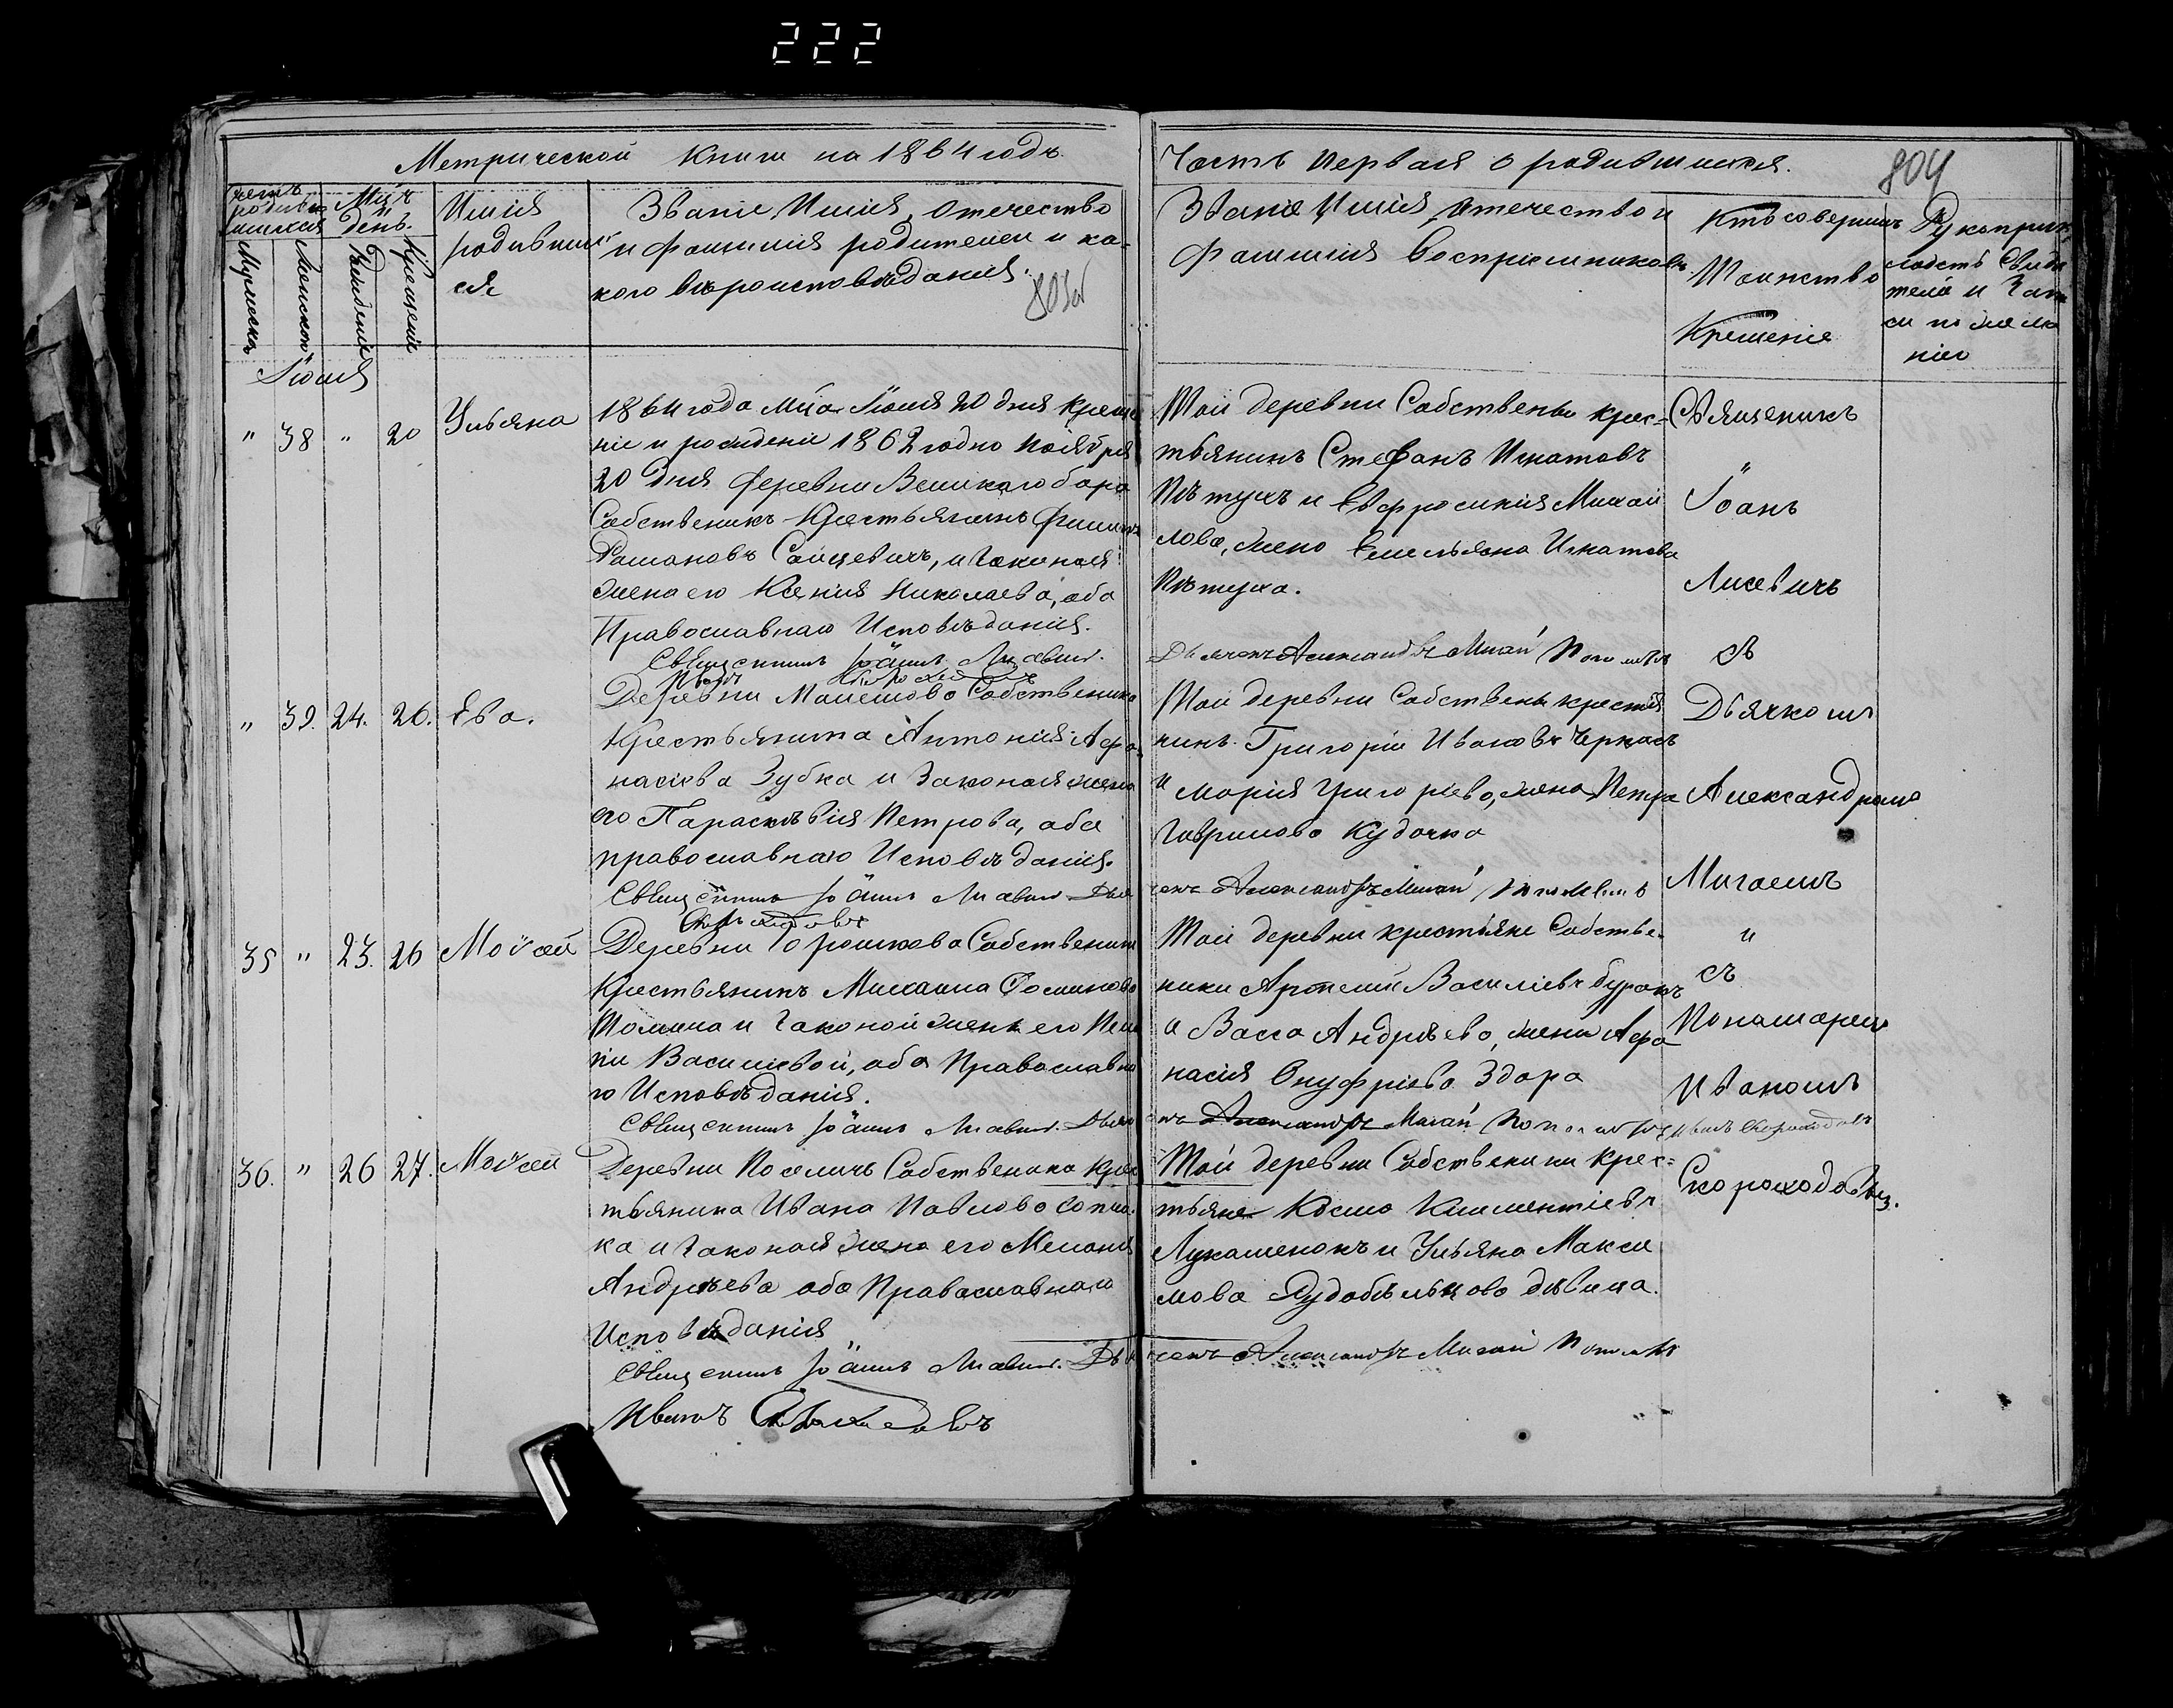 222
Метрической Книги на 1864 годъ.
Часть Первая о родившихся.
804
Счетъ родившихся
Мѣц. День.
Мужеска
Женскаго
Рожденія
Крещенія
Имя
родивших
ся
Званіе Имя, Отечество
и фамилія родителей и ка-
кого вѣроисповѣданія.
Званіе Имя, Отечество и
фамилія Воспріемниковъ
Кто совершалъ
Таинство
Крещенія
Рукоприк
ладств Свидѣ
телей
нію
Іюля
" 38 " 20 Ульяна
1864 года Мца Іюля 20 дня Креще
ніе и рожденіе 1862 года Ноября
20 Дня Деревни Великаго бора
Собственикъ Крестьянинъ Филипъ
Романовъ и Законая
Жена его Ксенія Николаева, оба
Православнаго Исповѣданія.
Священникъ Іоаннъ
Той деревни Собственый крес=
тьянинъ Стефанъ Игнатовъ
Пѣтухъ и Евфросинія Михай
лова, жена Емельяна Игнатова
Пѣтуха.
Дьячекъ Александръ Мигай Пономарь
Священикъ
"
Іоанъ
Лисевичъ
съ
" 39. 24. 26. Ева.
Деревни Собственика
Крестьянина Антонія Афа
насіева Зубка и Законая жена
его Параскевія Петрова, оба
православнаго Исповѣданія.
Священникъ Іоаннъ
Той деревни Собственый крестья
нинъ Григорій Ивановъ Черкасъ
и Марія Григоріева, жена Петра
Гаврилова Кудачка
Дьячекъ Александръ Мигай
Дьячкомъ
Александромъ
Мигаемъ
"
35 " 23. 26 Моѵсей
Деревни Горошкова Собственика
Крестьянинъ Михаила
и Законой жены его
Василіевой, оба Православна
го Исповѣданія.
Священникъ Іоаннъ
Той деревни крестьяне Собстве-
ники Артемій Василіевъ буракъ
и Васса Андрѣева, жена Афа
насія Онуфріева Здора
Дьячекъ Александръ Мигай Пономарь Иванъ Скороходовъ
съ
Пономаремъ
Иваномъ
36. " 26 27. Моѵсей
Деревни Собственика Крес
тьянина Ивана Павлова
ка и Законая жена его Меланія
Андрѣева оба Православнаго
Исповѣданія
Священникъ Іоаннъ
Иванъ Скороходовъ
Той деревни Собственики Крес=
тьяне Косма Климентіевъ
Лукашенокъ и Ульяна Макси
мова дѣвица.
Дьячекъ Александръ Мигай Пономарь
Скороходовымъ.